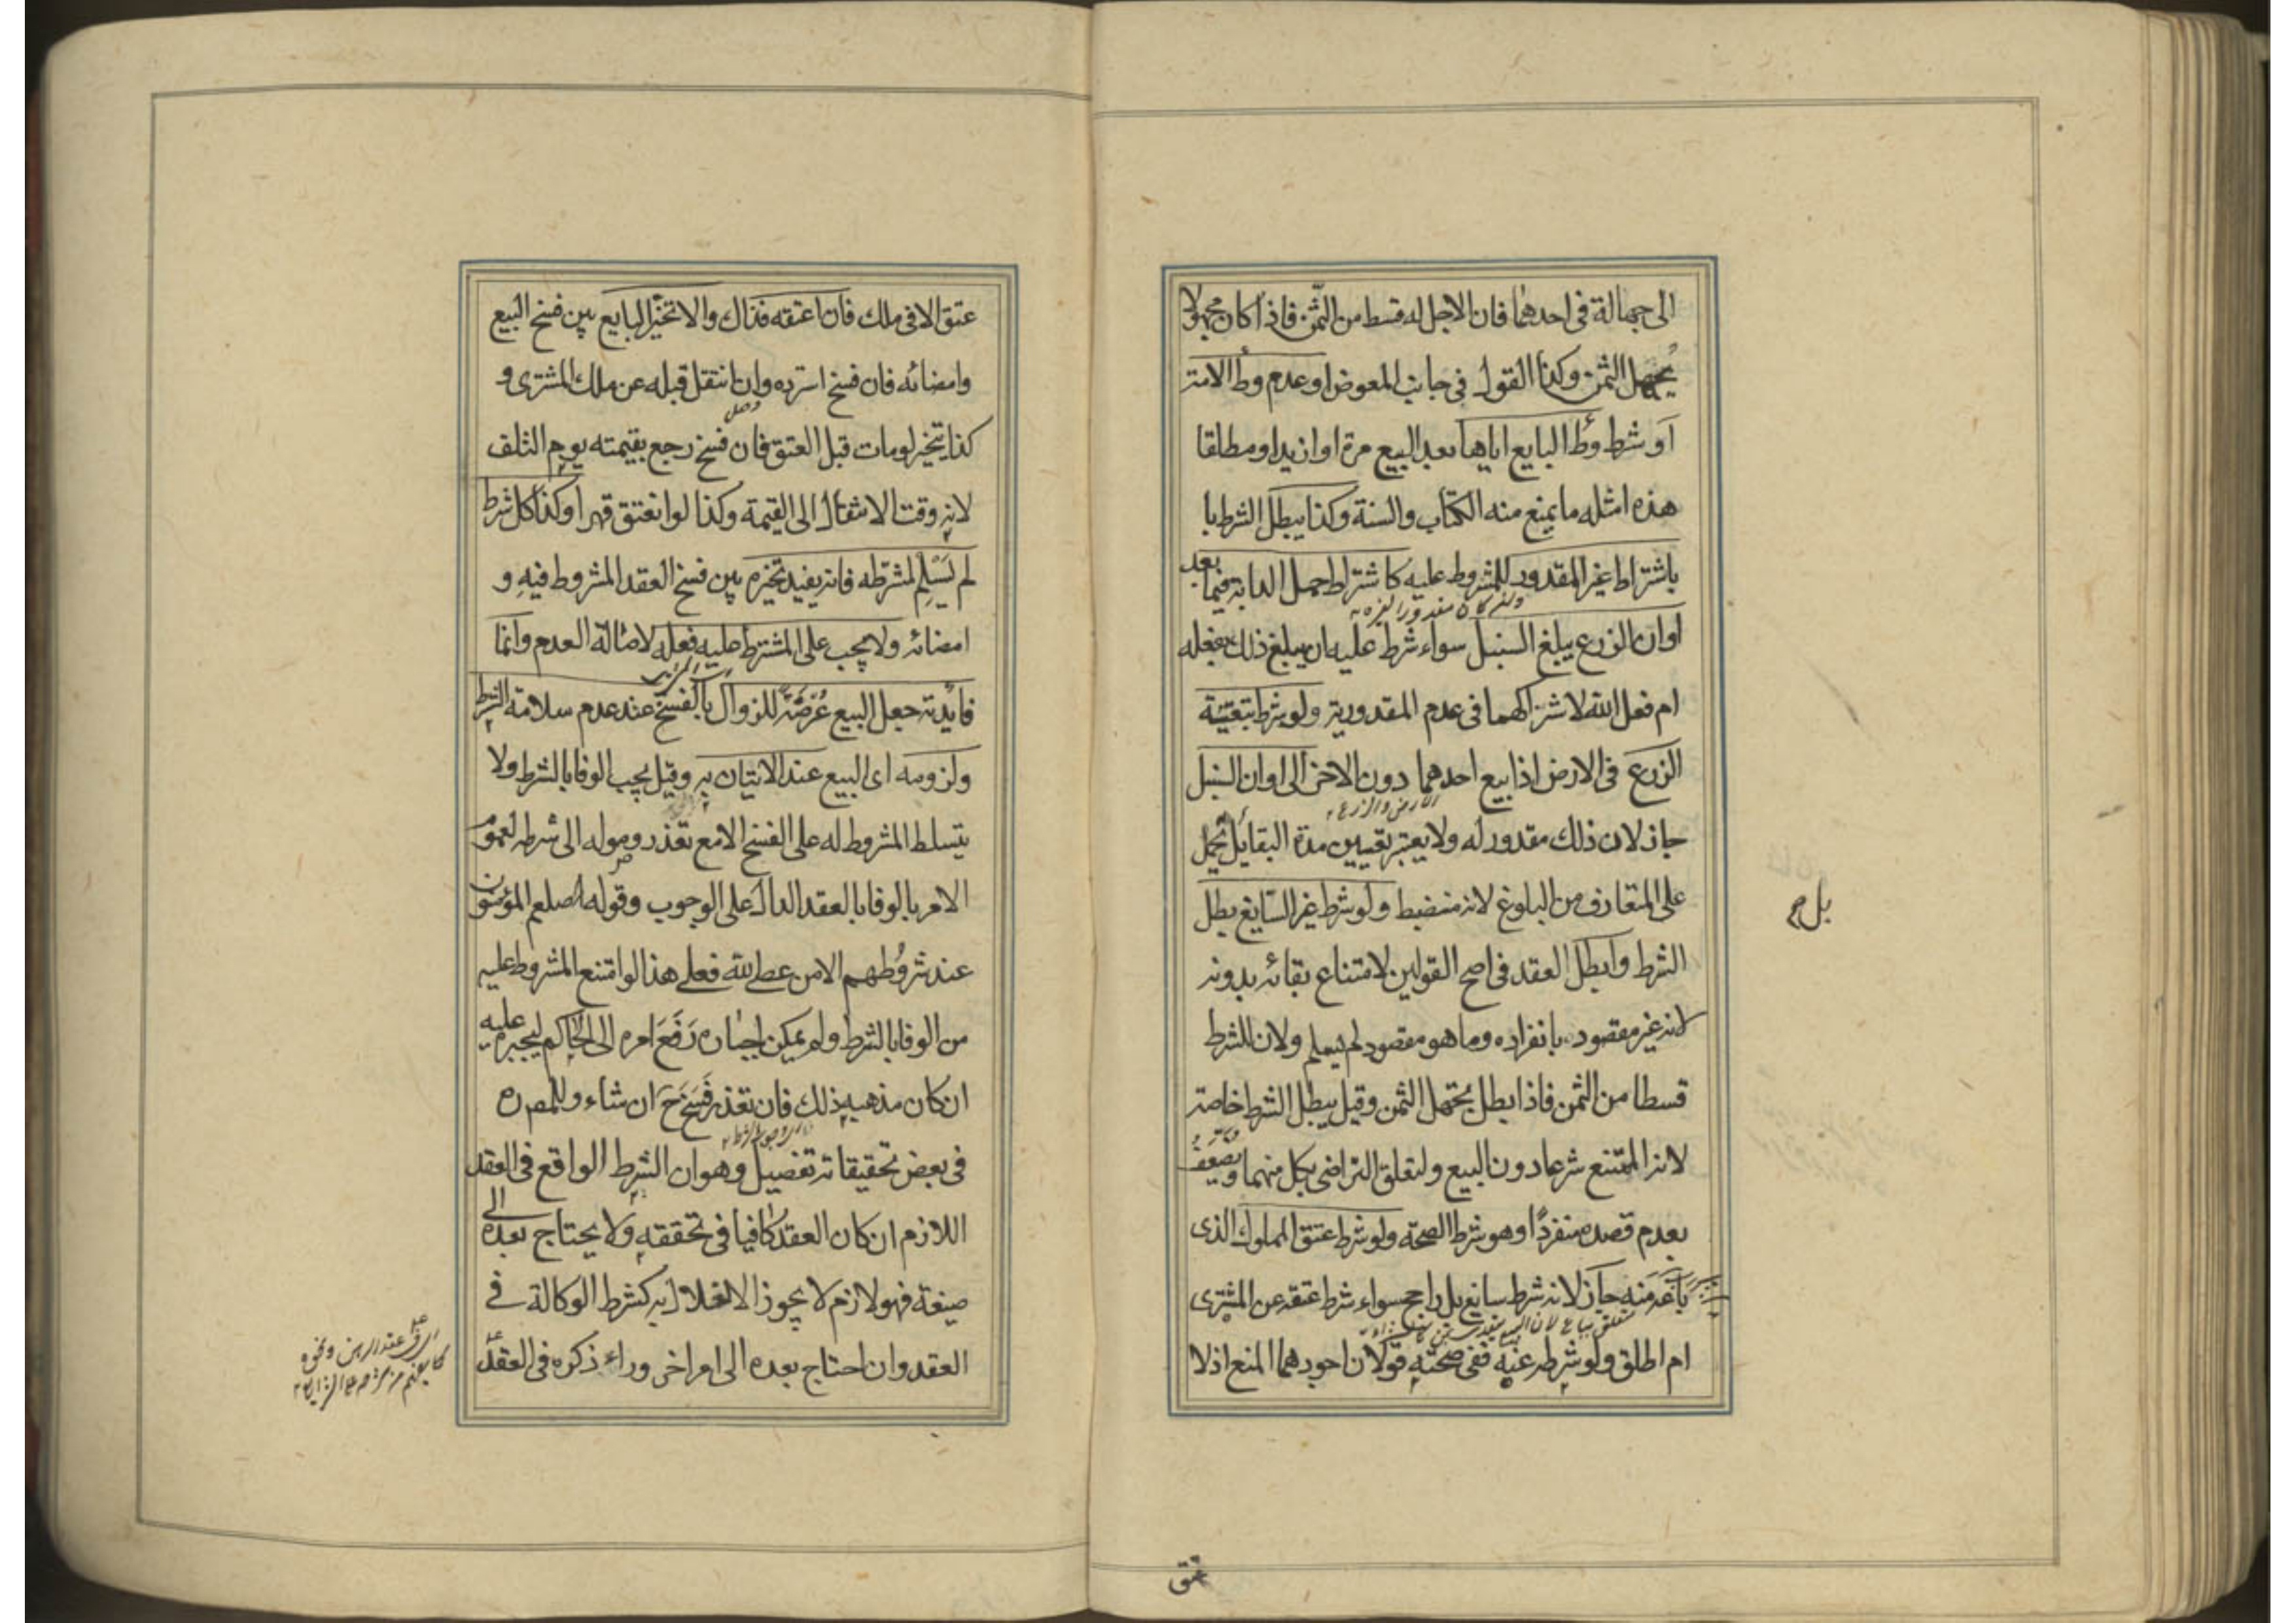 الى جهالة فى احدهما فان الاجل له قسط من الثمن فاذا كان مجهولا
يجهل الثمن وكذا القول فى جانب المعوض او عدم وطأ الامة
او شرط وطأ البايع اياها بعد البيع مرة او ازيد او مطلقا
هذه امثلة ما يمنع منه الكتاب والسنة وكذا يبطل الشرط با
باشتراط غير المقدور للمشروط عليه كاشتراط حمل الدابة فيما بعد
ولو كان مقدورا لغيره
او ان الزرع يبلغ السنبل سواء شرط عليه ان يبلغ ذلك بفعله
ام فعل الله لاشتراكهما فى عدم المقدورية ولو شرط تبقية
الزرع فى الارض اذا بيع احدهما دون الاخر الى اوان السنبل
الارض والزرع
جاز لان ذلك مقدور له ولا يعتبر تعيين مدة البقا بل يحمل
بل صح
على المتعارف من البلوغ لانه منضبط ولو شرط غير السايغ بطل
الشرط وابطل العقد فى اصح القولين لامتناع بقائه بدونه
لانه غير مقصود بانفراده وما هو مقصود لم يسلم ولان للشرط
قسطا من الثمن فاذا بطل يجهل الثمن وقيل يبطل الشرط خاصة
لانه الممتنع شرعا دون البيع ولتعلق التراضى بكل منهما ويضعف
بعدم قصده منفردا وهو شرط الصحة ولو شرط عتق المملوك الذى
باعه منه جاز لانه شرط سايغ بل راجح سواء شرط عتقه عن المشترى
ام اطلق ولو شرطه عنه ففى صحته قولان اجودهما المنع اذ لا
عتق
عتق الا فى ملك فان اعتقه فذاك والا تخير البايع بين فسخ البيع
وامضائه فان فسخ استرده وان انتقل قبله عن ملك المشترى و
كذا يتخير لو مات قبل العتق فان فسخ رجع بقيمته يوم التلف
لانه وقت الانتقال الى القيمة وكذا لو انعتق قهرا وكذا كل شرط
لم يسلم لمشترطه فانه يفيد تخيره بين فسخ العقد المشروط فيه و
امضائه ولا يجب على المشترط عليه فعله لاصالة العدم وانما
فايدته جعل البيع عرضة للزوال بالفسخ عند عدم سلامة الشرط
ولزومه اى البيع عند الاتيان به وقيل يجب الوفا بالشرط ولا
يتسلط المشروط له على الفسخ الا مع تعذر وصوله الى شرطه لعموم
الامر بالوفا بالعقد الدال على الوجوب وقوله صلعم المؤمنون
عند شروطهم الا من عصى الله فعلى هذا لو امتنع المشروط عليه
من الوفا بالشرط ولم يمكن اجباره رفع امره الى الحاكم ليجبره عليه
ان كان مذهبه ذلك فان تعذر فسخ ح ان شاء وللمص ره
فى بعض تحقيقاته تفصيل وهو ان الشرط الواقع فى العقد
اللازم ان كان العقد كافيا فى تحققه ولا يحتاج بعده الى
صيغة فهو لازم لا يجوز الاخلال به كشرط الوكالة فى
العقد وان احتاج بعده الى امر اخر وراء ذكره فى العقد